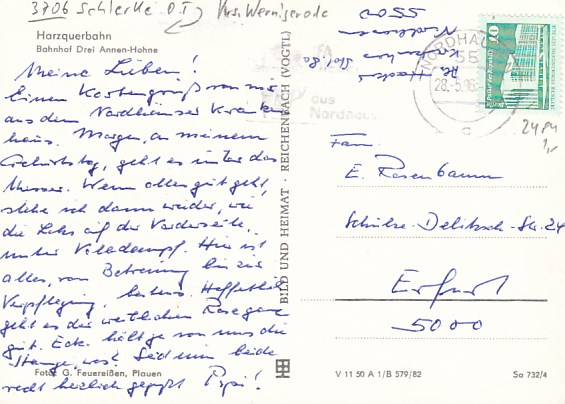 3706 Schierke O.T. Krs. Wernigerode
Harzquerbahn
Bahnhof Drei Annen-Hohne
Meine Lieben!
einen Kartengruß von mir
aus dem Nordhäuser Kranken
haus. Morgen, an meinem
Geburtstag, geht es unter das
Messer. Wenn alles gut geht,
stehe ich dann wieder, wie
die Loks auf der Vorderseite,
unter Volldampf. Hier ist
alles, von Betreuung bis zur
Verpflegung, bestens. Hoffentlich
geht es der westlichen
gut. Ecke hält je von uns die
Stange, was! Seid nun beide
recht herzlich gegrüßt Papi!
Foto: G. Feuereißen, Plauen
BILD UND HEIMAT · REICHENBACH (VOGTL)
5500
Nordhausen
Krankenhaus
NORDHAUSEN
55
28.-5.86
c
aus
Nordhausen
20
24 84
1,-
Fam.
E. Rosenbaum
Schulze-Delitzsch-Str. 24
Erfurt
5000
V 11 50 A 1/B 579/82
So 732/4